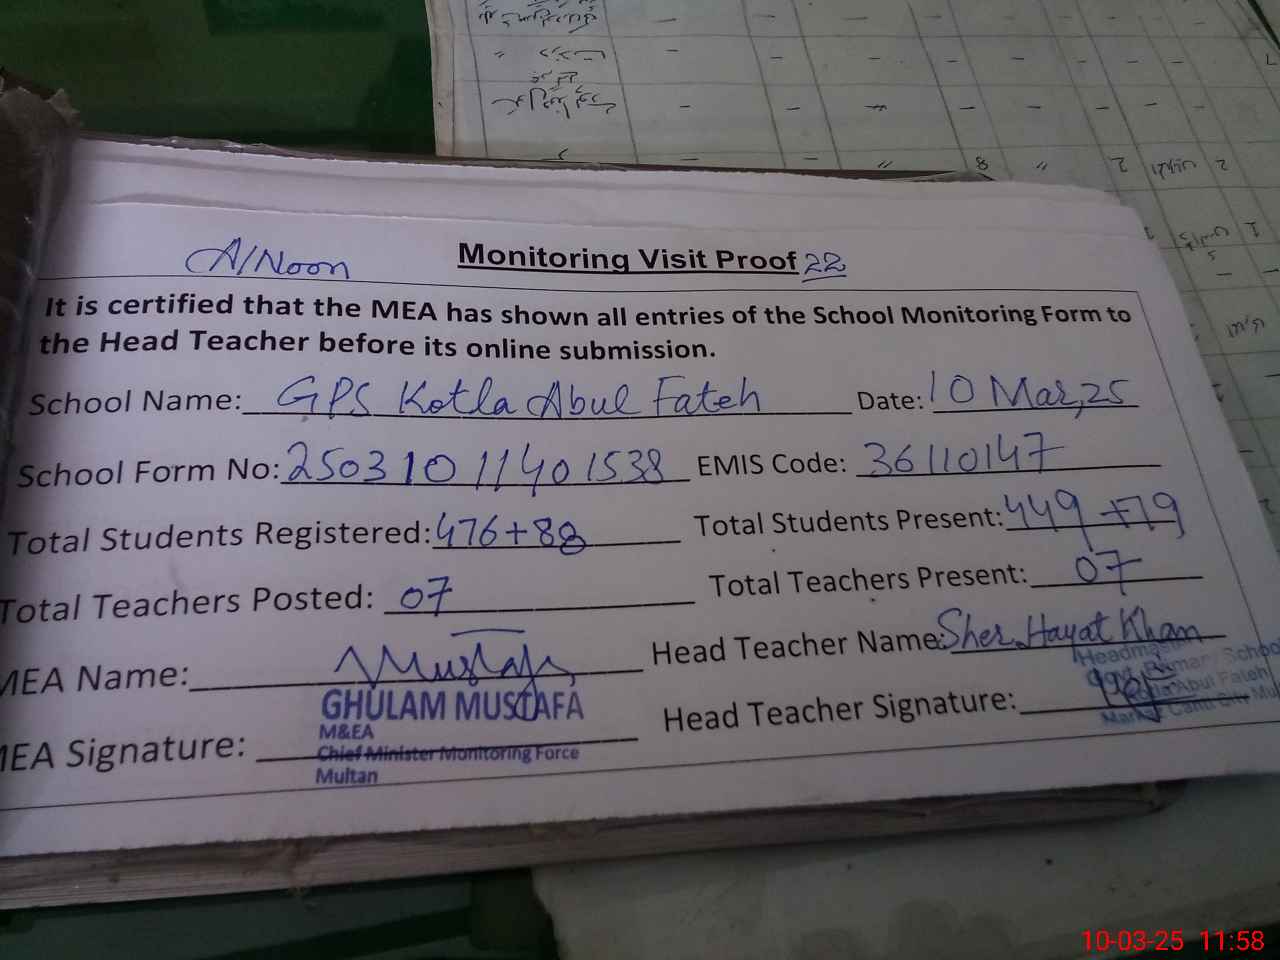 A/Noon Monitoring Visit Proof 22
It is certified that the MEA has shown all entries of the School Monitoring Form to
the Head Teacher before its online submission.
School Name: GPS Kotla Abul Fateh Date: 10 Mar, 25
School Form No: 25031011401538 EMIS Code: 36110147
Total Students Registered: 476+88 Total Students Present: 449+79
Total Teachers Posted: 07 Total Teachers Present: 07
MEA Name: Mustafa Head Teacher Name: Sher Hayat Khan
GHULAM MUSTAFA
M&EA
Chief Minister Monitoring Force
Multan
MEA Signature: Head Teacher Signature:
Headmaster
Govt. Primary School
Kotla Abul Fateh
10-03-25 11:58